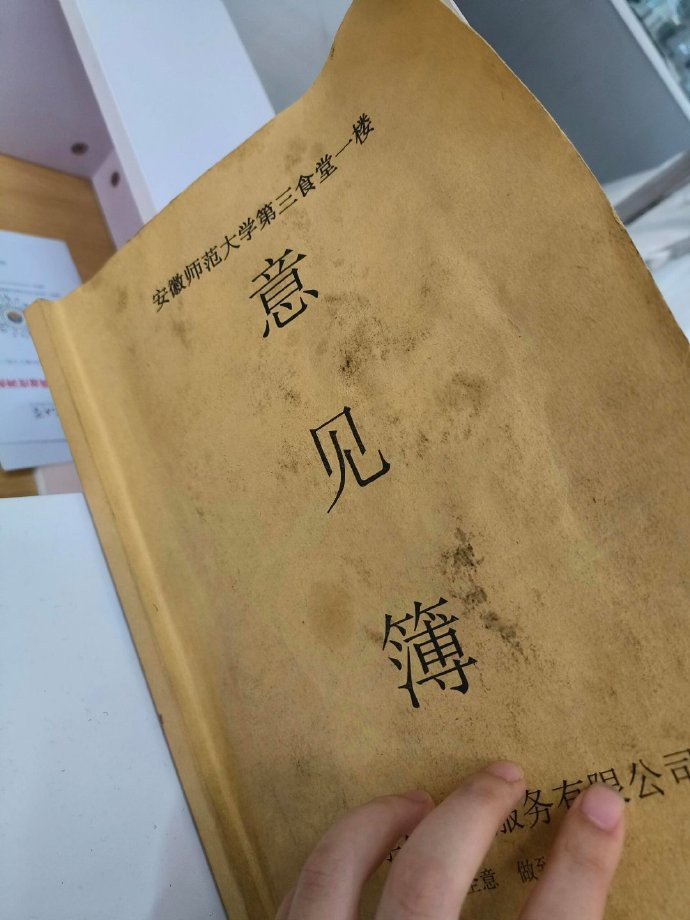 安徽师范大学第三食堂一楼
意
见
簿
服务有限公司
意 做